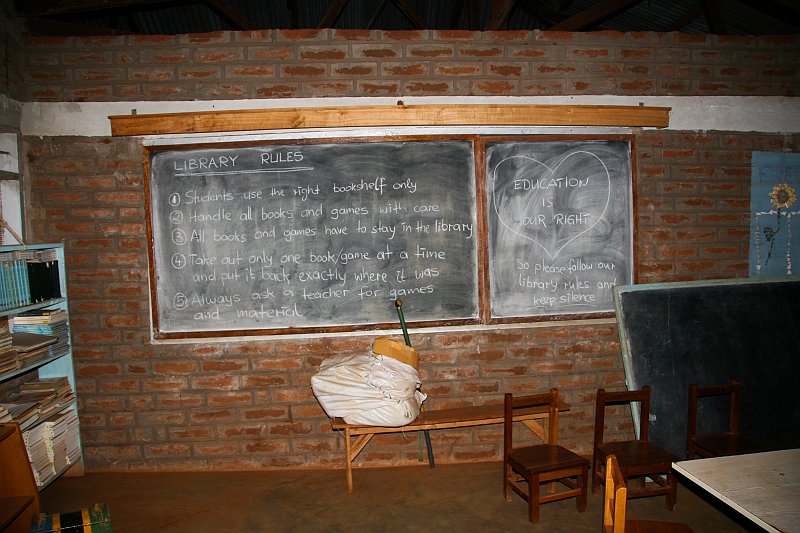 LIBRARY RULES
① Students use the right bookshelf only
② Handle all books and games with care
③ All books and games have to stay in the library
④ Take out only one book/game at a time
and put it back exactly where it was
⑤ Always ask a teacher for games
and material
EDUCATION
IS
YOUR RIGHT
So please follow our
library rules and
keep silence